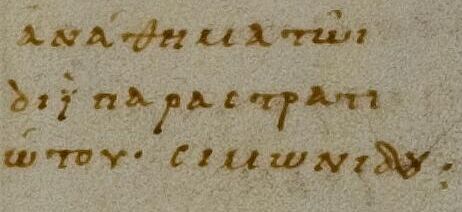 ἀνάθημα τῶι
διῒ παρα στρατι
ώτου· σιμωνίδου: